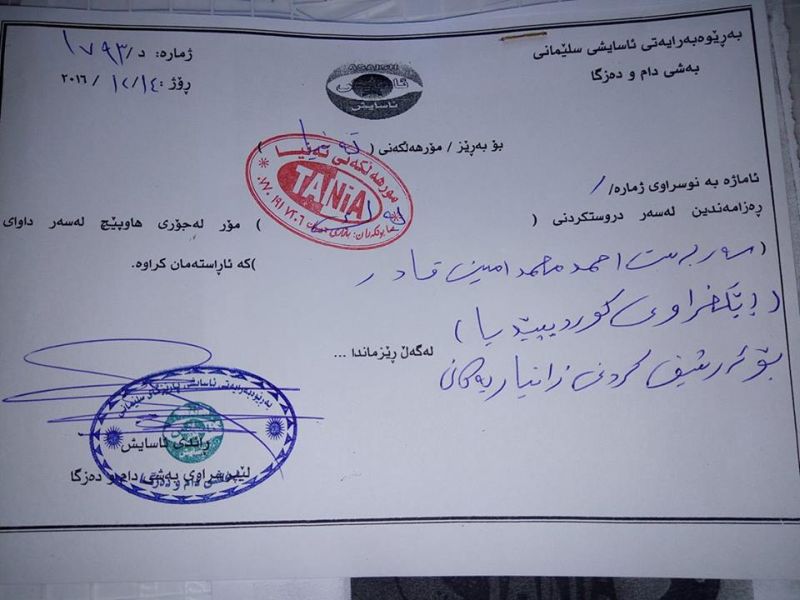 بەڕێوەبەرایەتی ئاسایشی سلێمانی
بەشی دام و دەزگا
ژمارە: د/ ١٧٩٣
ڕۆژ: ١٤/ ١٢/ ٢٠١٦
ASAISH
ئاسایش
بۆ بەڕێز / مۆرهەلکەنی ( تەنیا )
مۆرهەلکەنی تەنیا
TANiA
ئاماژە بە نوسراوی ژمارە/ /
ڕەزامەندین لەسەر دروستکردنی ( ) مۆر لەجۆری هاوپێچ لەسەر داوای
(سەربەست احمد محمد امین قادر
)کە ئاراستەمان کراوە.
(ڕێکخراوی کوردیپێدیا)
بۆ ئەرشیف کردنی زانیاریەکان
لەگەڵ ڕێزماندا ...
ڕائدی ئاسایش
لێپرسراوی بەشی دام و دەزگا